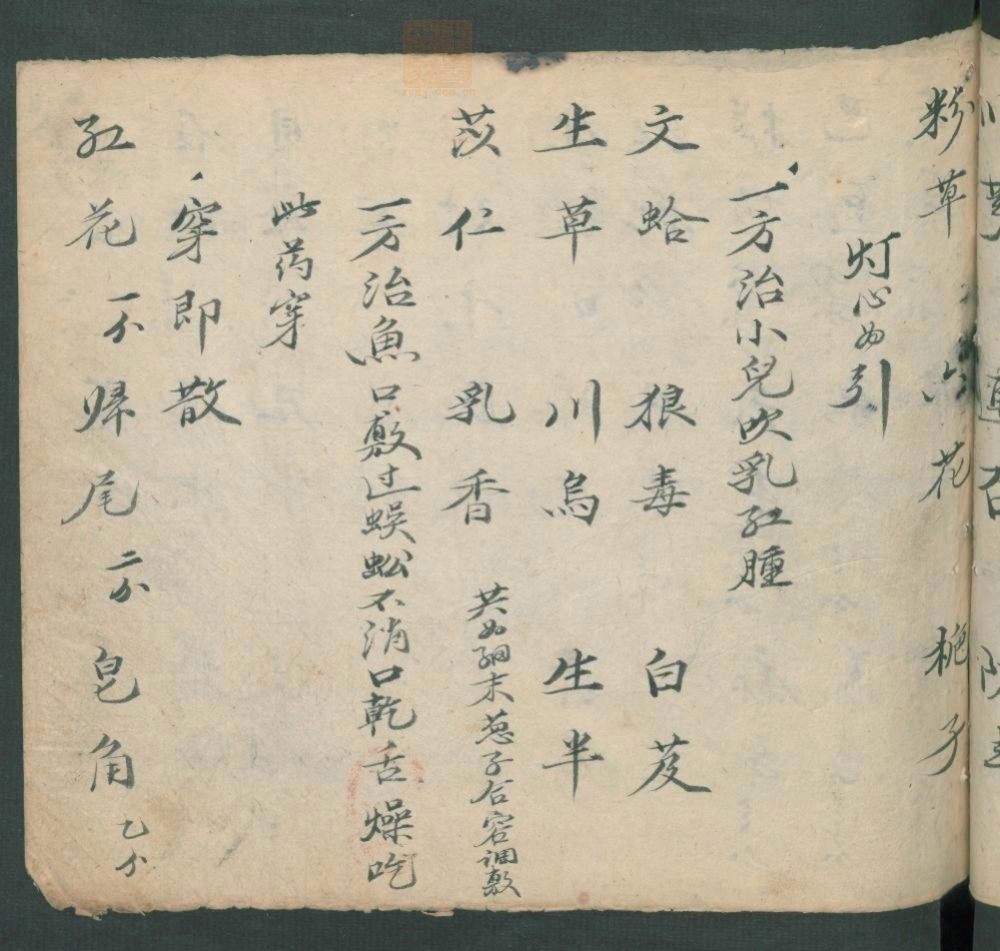 粉草 六花 栀子
灯心为引
一方治小兒吹乳紅腫
文蛤 狼毒 白芨
生草 川烏 生半
苡仁 乳香 共为細末葱子合窑调敷
一方治魚口敷过蜈蚣不消口乾舌燥吃
此药穿
穿即散
紅花 一个 归尾 二分 皂角 乙分